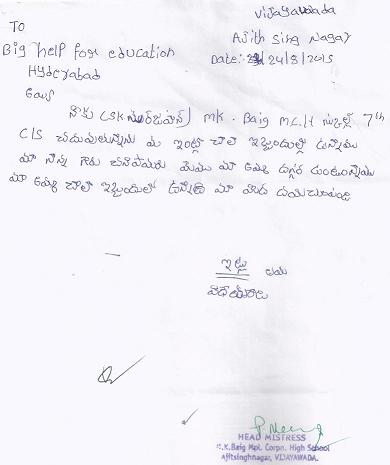 Vijayawada
TO
Ajith Sing Nagar
Big help for education
Date: 24/8/2015
Hyderabad
నాకు (SK నూర్జహాన్) MK. Baig M.C.H స్కూల్లో 7th
C/S చదువుతున్నాను మా ఇంట్లో చాలా ఇబ్బందుల్లో ఉన్నాము
మా నాన్న గారు చనిపోయారు మేము మా అమ్మ దగ్గర ఉంటున్నాము
మా అమ్మ చాలా ఇబ్బందులో ఉన్నది మా మీద దయచూపండి
ఇట్లు
విధేయురాలు
HEAD MISTRESS
M.K.Baig Mpl. Corpn. High School
Ajitsinghnagar, VIJAYAWADA.